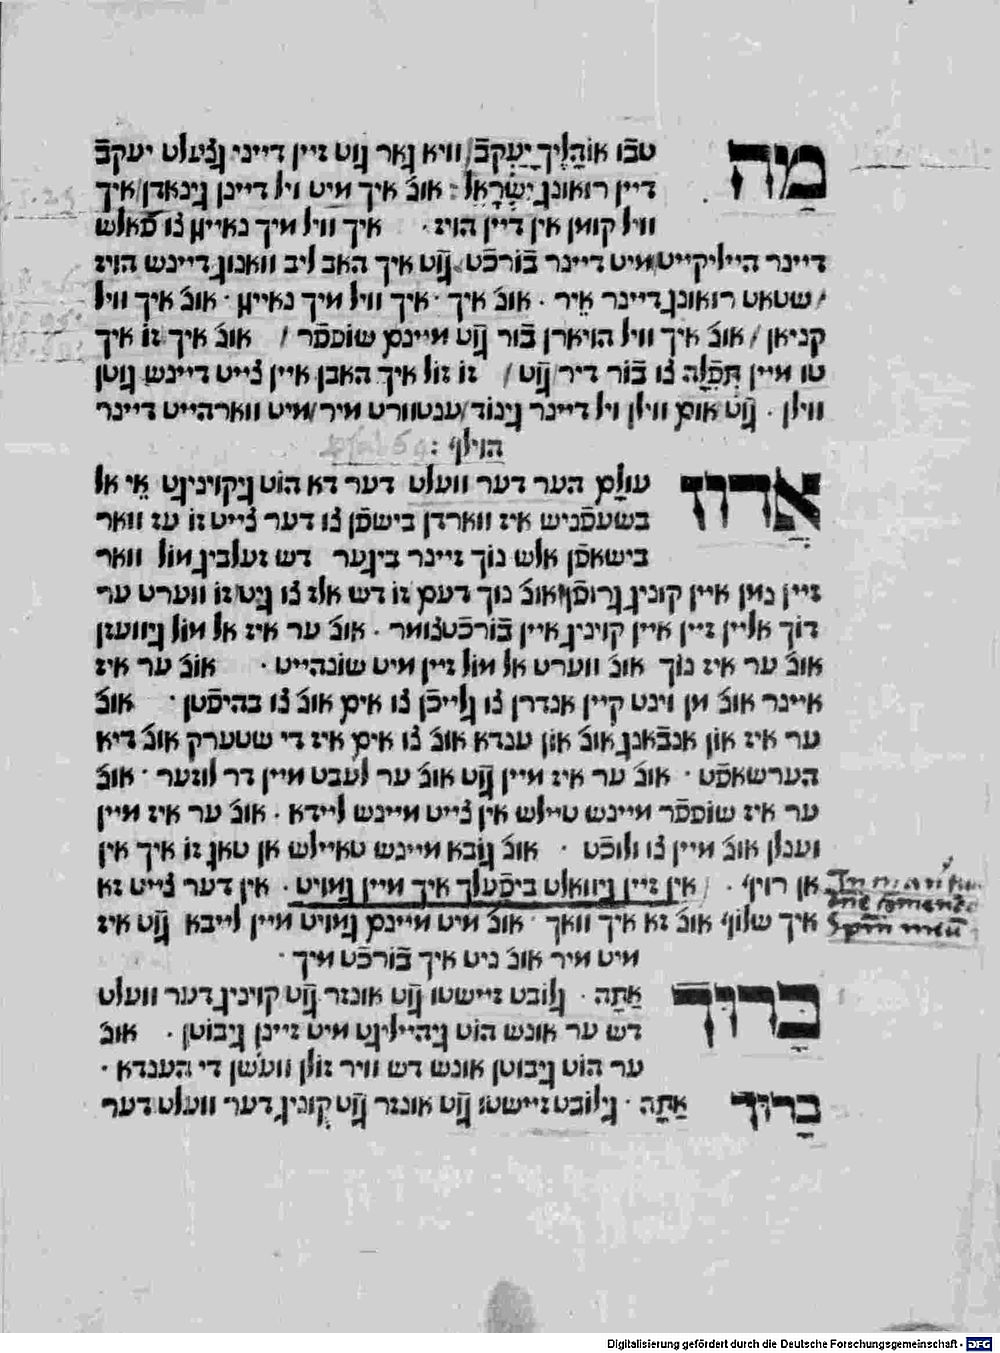 מַה טבֿו אוֹהָלֶיךָ יַעֲקֹבֿ / וויא גאר גוט זיין דייני גציעלט יעקבֿ
דיין רואונג יִשְׂרָאֵל : אונ' איך מיט ויל דיינן גינאדן / איך
וויל קומן אין דיין הויז · איך וויל מיך נאייגן צו פאלש
דיינר הייליקייט מיט דיינר בֿורכֿט גוט איך האב ליב וואנונג דיינש הויז
/ שטאט רואונג דיינר אֵיר · אונ' איך · איך וויל מיך נאייגן · אונ' איך וויל
קניאן / אונ' איך וויל הויארן בֿור גוט מיינם שופפֿר / אונ' איך זו איך
טו מיין תְּפִלָּה צו בֿור דיר גוט / זו זול איך האבן איין צייט דיינש גוטן
ווילן · גוט אום ווילן ויל דיינר גינוד / ענטוורט מיר / מיט ווארהייט דיינר
הוילף :
אֲדוֹן עולָם הער דער וועלט דער דא הוט גיקוינייגט אֵי אל
בשעפֿניש איז ווארדן בישפֿן צו דער צייט זו עז וואר
בישאפֿן אלש נוך זיינר ביגער דש זעלביג מול וואר
זיין נמן איין קוניג גרופֿן אונ' נוך דעם זו דש אלז צו גיט זו ווערט ער
דוך אליין זיין איין קויניג איין בֿורכֿטצומר · אונ' ער איז אל מול גיוועזן
אונ' ער איז נוך אונ' ווערט אל מול זיין מיט שונהייט · אונ' ער איז
איינר אונ' מן וינט קיין אנדרן צו גלייכֿן צו אים אונ' צו בהיפֿטן · אונ'
ער איז און אנבֿאנג אונ' און ענדא אונ' צו אים איז די שטערק אונ' דיא
הערשאפֿט · אונ' ער איז מיין גוט אונ' ער לעבט מיין דר לוזער · אונ'
ער איז שופפֿר מיינש טיילש אין צייט מיינש ליידא · אונ' ער איז מיין
וענלן אונ' מיין צו ולוכֿט · אונ' גובא מיינש טאיילש אן טאג זו איך אין
אן רויף · / אין זיין גיוואלט ביפֿעלך איך מיין גמויט · אין דער צייט זא
איך שלוף אונ' זא איך וואך · אונ' מיט מיינם גמויט מיין לייבא גוט איז
מיט מיר אונ' ניט איך בֿורכֿט מיך ·
בָּרוּךְ אַתָּה · גלובט זיישטו גוט אונזר גוט קויניג דער וועלט
דש ער אונש הוט גיהייליגט מיט זיינן גיבוטן · אונ'
ער הוט גיבוטן אונש דש וויר זולן וועשן די הענדא ·
בָּרוּךְ אַתָּה · גלובט זיישטו גוט אונזר גוט קוניג דער וועלט דער
In man'
dne comendo
Spm meu
Digitalisierung gefördert durch die Deutsche Forschungsgemeinschaft - DFG